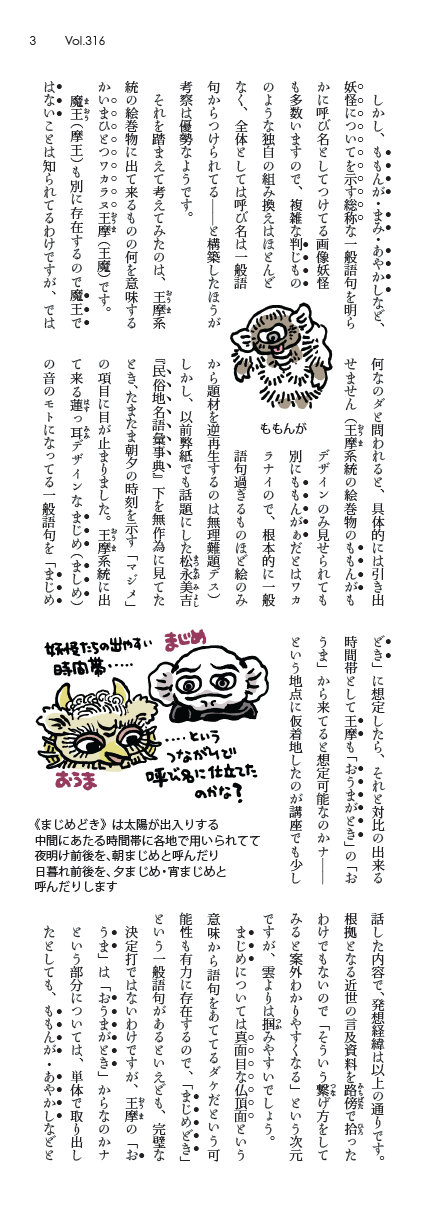 3
Vol.316
しかし、ももんが・まみ・あやかしなど、
妖怪についてを示す総称な一般語句を明ら
かに呼び名としてつけてる画像妖怪
も多数いますので、複雑な判じもの
のような独自の組み換えはほとんど
なく、全体としては呼び名は一般語
句からつけられてる――と構築したほうが
考察は優勢なようです。
それを踏まえて考えてみたのは、王摩系
統の絵巻物に出て来るものの何を意味する
かいまひとつワカラヌ王摩（王魔）です。
魔王（摩王）も別に存在するので魔王で
はないことは知られてるわけですが、では
何なのダと問われると、具体的には引き出
せません（王摩系統の絵巻物のももんがも
デザインのみ見せられても
別にももんがぁだとはワカ
ラナイので、根本的に一般
語句過ぎるものほど絵のみ
から題材を逆再生するのは無理難題デス）
しかし、以前弊紙でも話題にした松永美吉
『民俗地名語彙事典』下を無作為に見てた
とき、たまたま朝夕の時刻を示す「マジメ」
の項目に目が止まりました。王摩系統に出
て来る蓮っ耳デザインなまじめ（ましめ）
の音のモトになってる一般語句を「まじめ
どき」に想定したら、それと対比の出来る
時間帯として王摩も「おうまがとき」の「お
うま」から来てると想定可能なのかナ――
という地点に仮着地したのが講座でも少し
話した内容で、発想経緯は以上の通りです。
根拠となる近世の言及資料を路傍で拾った
わけでもないので「そういう繋げ方をして
みると案外わかりやすくなる」という次元
ですが、雲よりは掴みやすいでしょう。
まじめについては真面目な仏頂面という
意味から語句をあててるダケだという可
能性も有力に存在するので、「まじめどき」
という一般語句があるといえども、完璧な
決定打ではないわけですが、王摩の「お
うま」は「おうまがとき」からなのかナ
という部分については、単体で取り出し
たとしても、ももんが・あやかしなどと
ももんが
妖怪たちの出やすい
時間帯・・・・・
まじめ
おうま
・・・・という
つながりで
呼び名に仕立てた
のかな?
《まじめどき》は太陽が出入りする
中間にあたる時間帯に各地で用いられてて
夜明け前後を、朝まじめと呼んだり
日暮れ前後を、夕まじめ・宵まじめと
呼んだりします